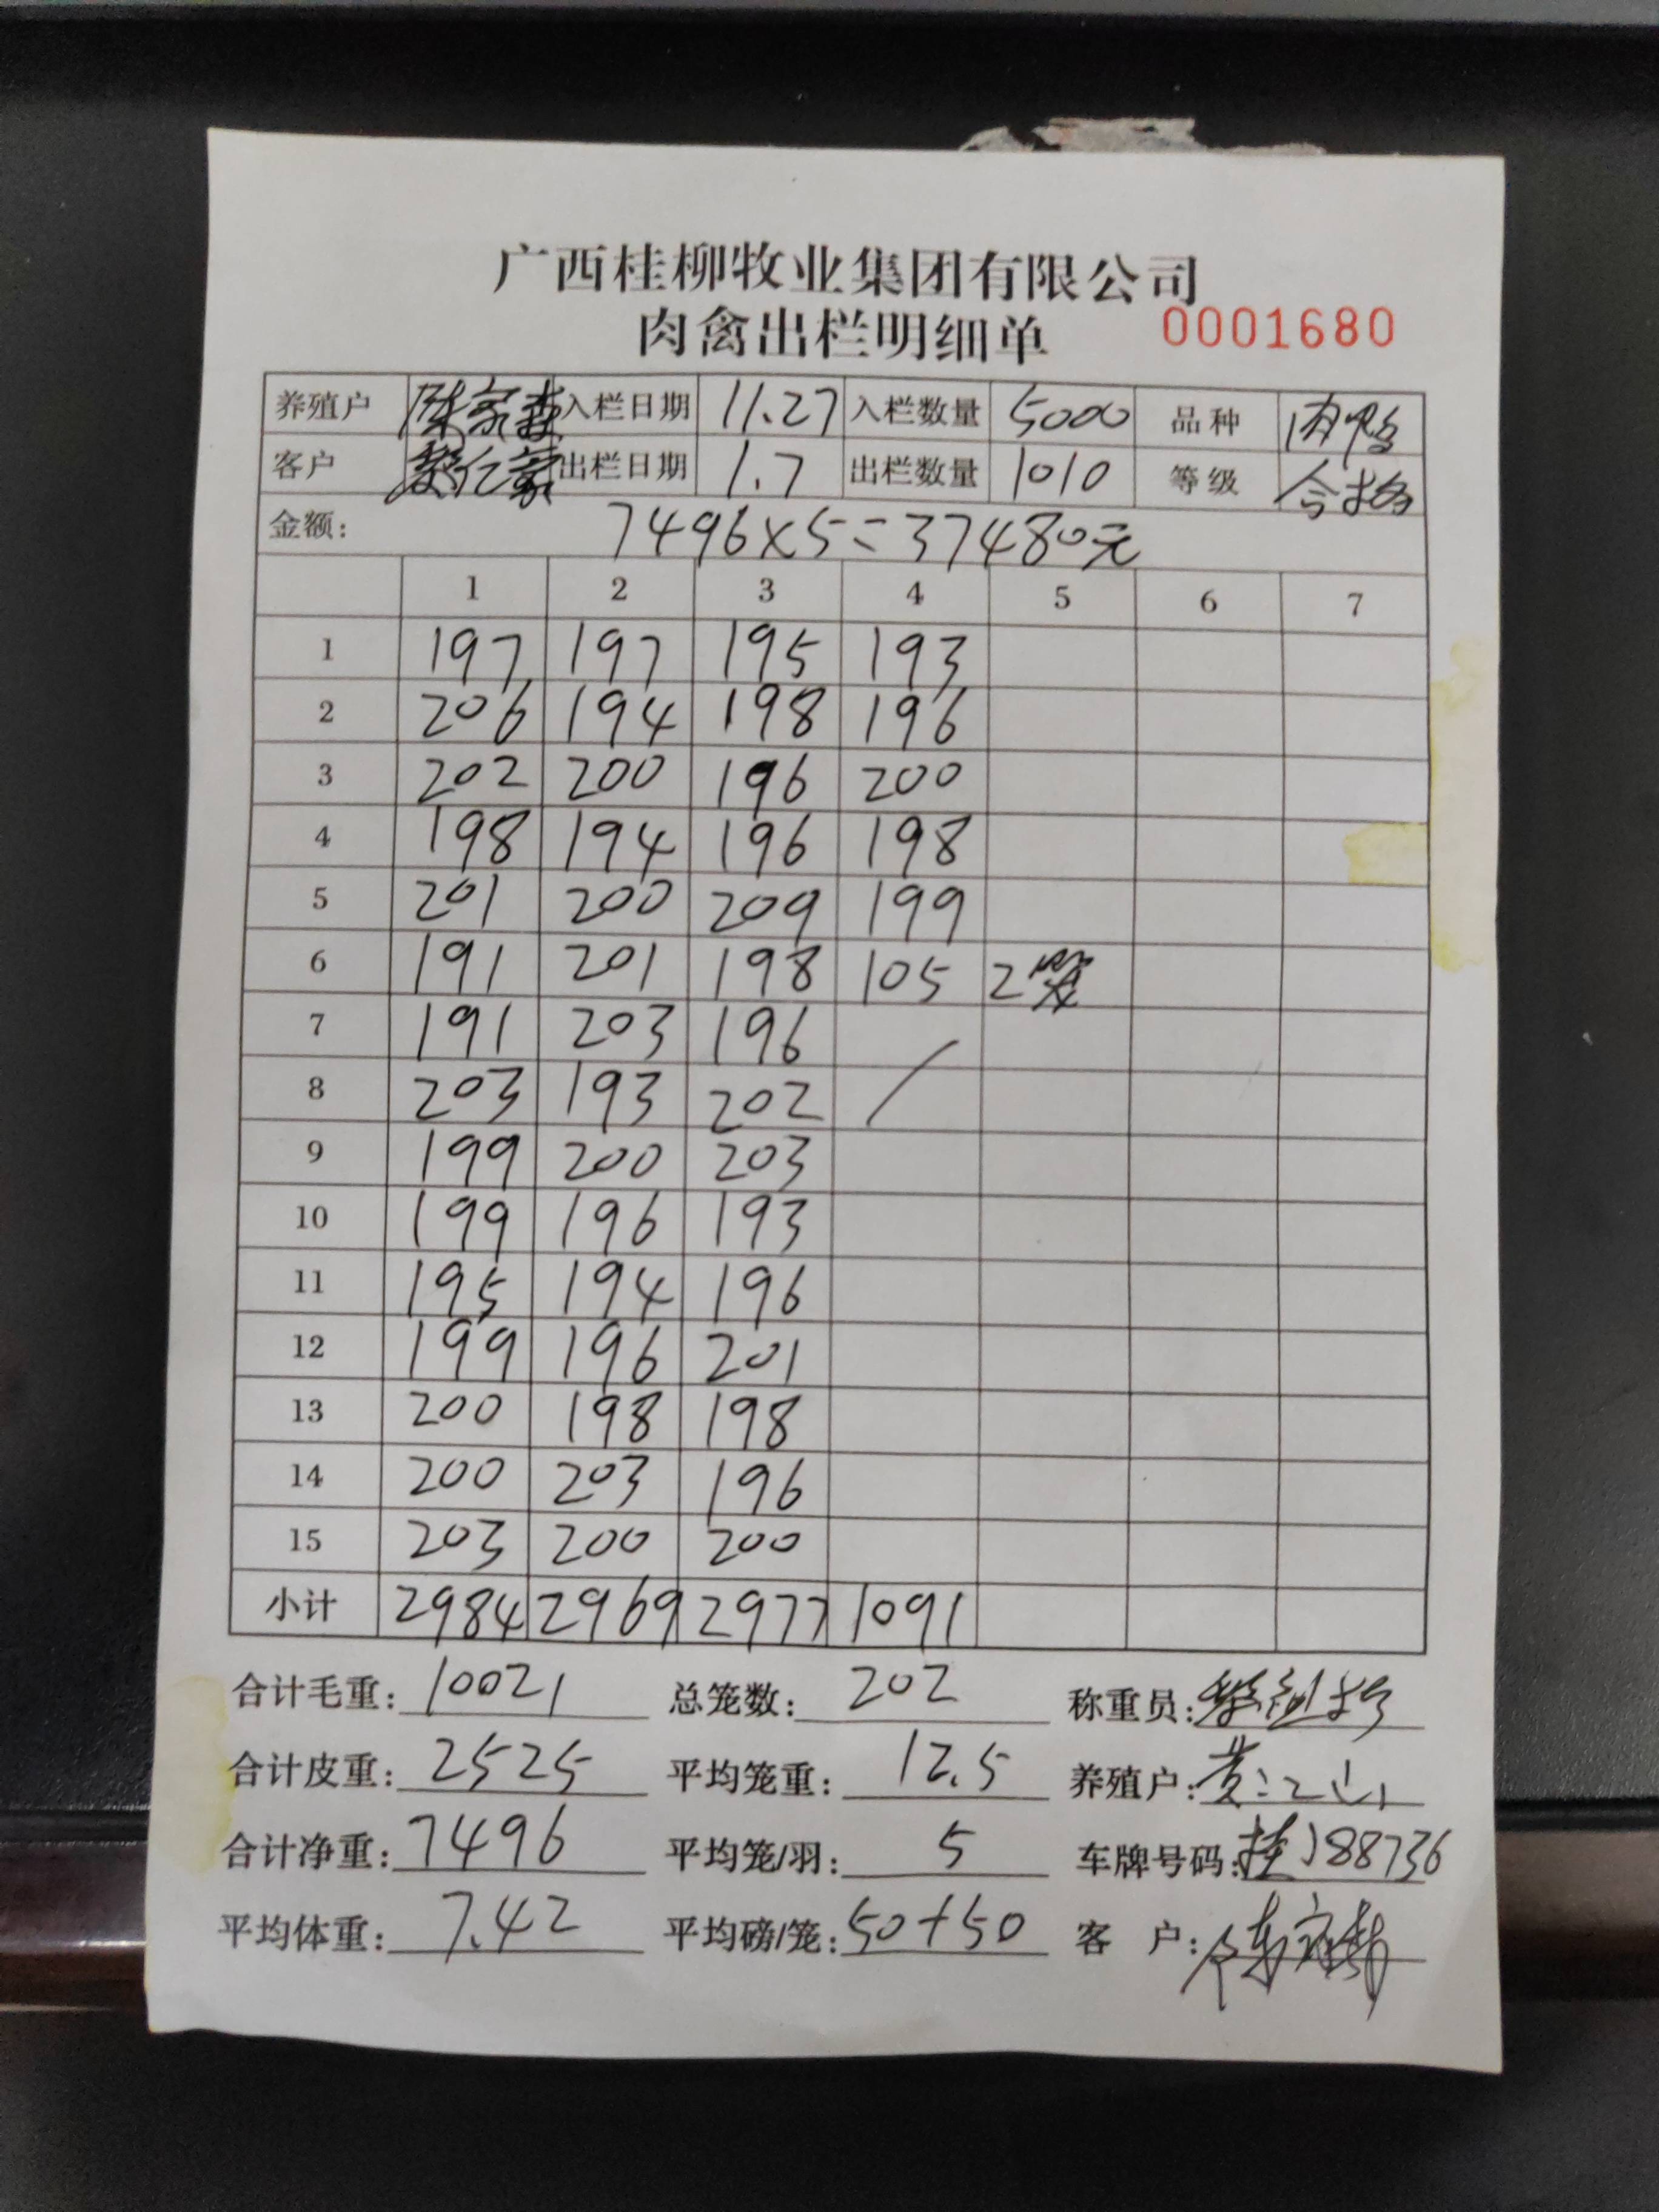 广西桂柳牧业集团有限公司
肉禽出栏明细单 0001680
养殖户 陈家森 入栏日期 11.27 入栏数量 5000 品种 肉鸭
客户 出栏日期 1.7 出栏数量 1010 等级 合格
金额: 7496×5=37480元
1 2 3 4 5 6 7
1 197 197 195 193
2 206 194 198 196
3 202 200 196 200
4 198 194 196 198
5 201 200 209 199
6 191 201 198 105 2笼
7 191 203 196
8 203 193 202 /
9 199 200 203
10 199 196 193
11 195 194 196
12 199 196 201
13 200 198 198
14 200 203 196
15 203 200 200
小计 2984 2969 2977 1091
合计毛重: 10021 总笼数: 202 称重员:
合计皮重: 2525 平均笼重: 12.5 养殖户: 黄江山
合计净重: 7496 平均笼/羽: 5 车牌号码: 桂J88736
平均体重: 7.42 平均磅/笼: 50+50 客 户: